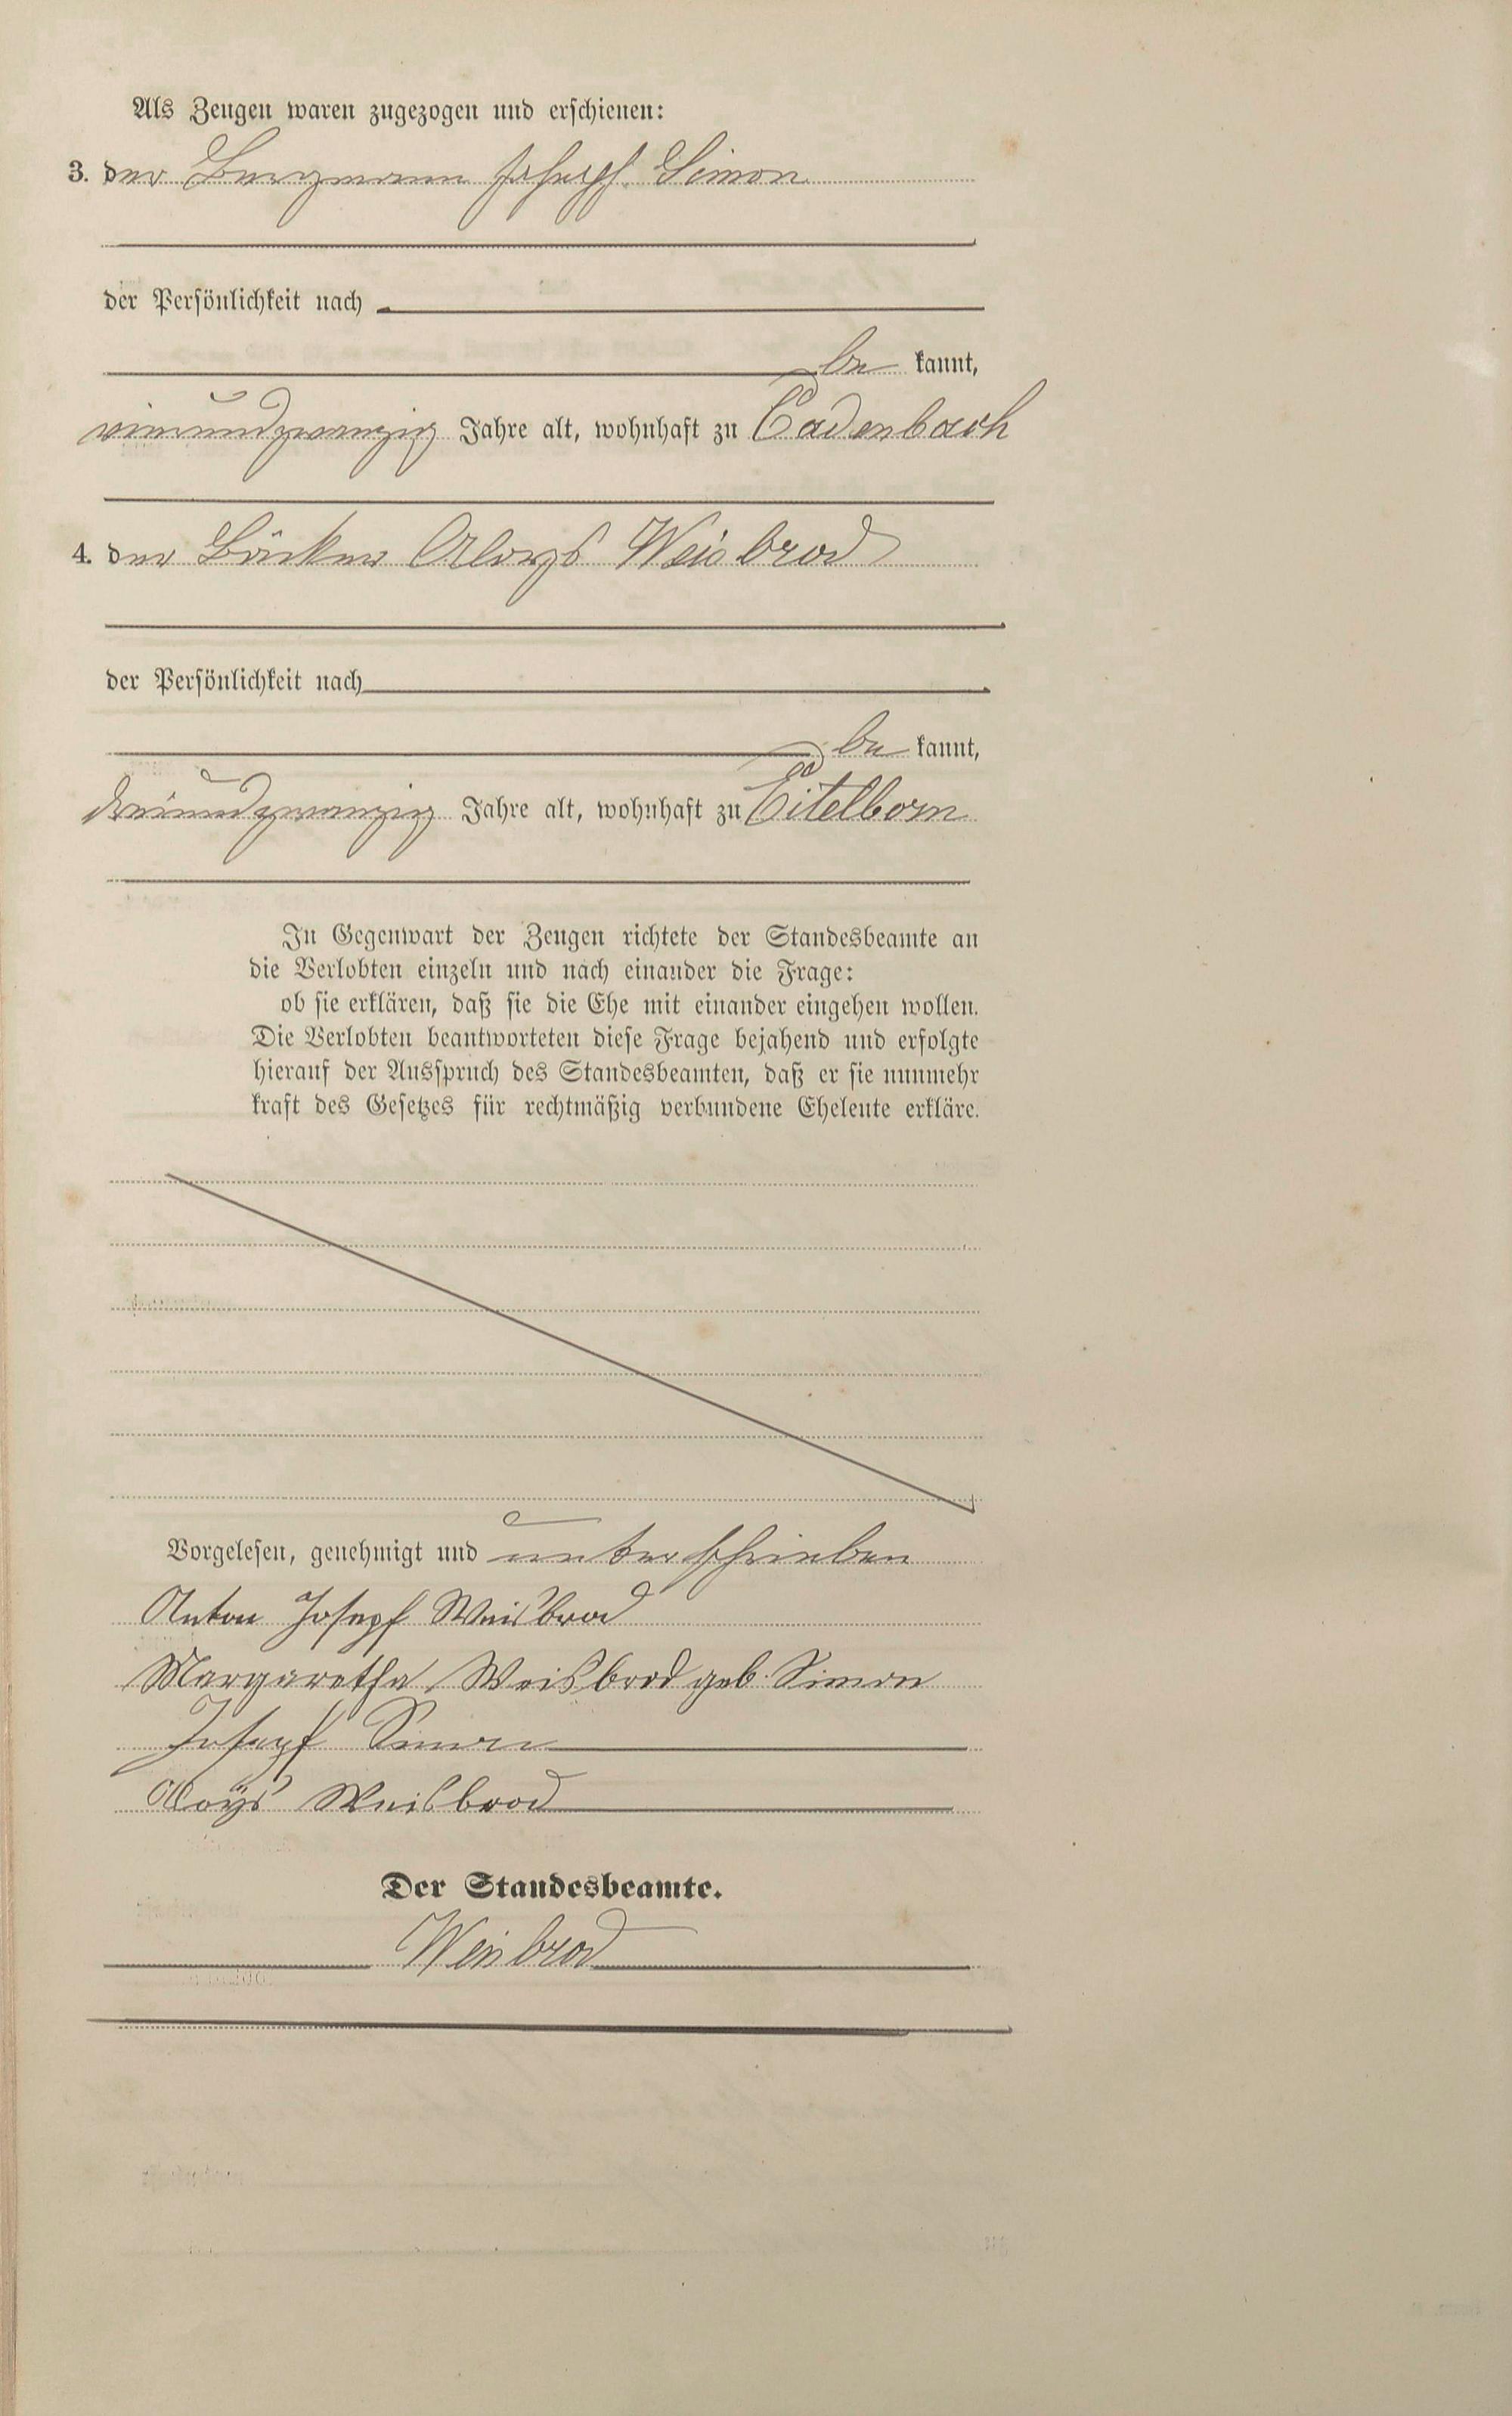 Als Zeugen waren zugezogen und erschienen:
3. der Bergmann Joseph Simon
der Persönlichkeit nach
be kannt,
vierundzwanzig Jahre alt, wohnhaft zu Cadenbach
4. der Bäcker Aloys Weisbrod
der Persönlichkeit nach
be kannt,
dreiundzwanzig Jahre alt, wohnhaft zu Eitelborn
In Gegenwart der Zeugen richtete der Standesbeamte an
die Verlobten einzeln und nach einander die Frage:
ob sie erklären, daß sie die Ehe mit einander eingehen wollen.
Die Verlobten beantworteten diese Frage bejahend und erfolgte
hierauf der Ausspruch des Standesbeamten, daß er sie nunmehr
kraft des Gesetzes für rechtmäßig verbundene Eheleute erkläre.
Vorgelesen, genehmigt und unterschrieben
Anton Josepf Weisbrod
Margaretha Weisbrod geb. Simon
Josepf Simon
Aloÿs Weisbrod
Der Standesbeamte.
Weisbrod